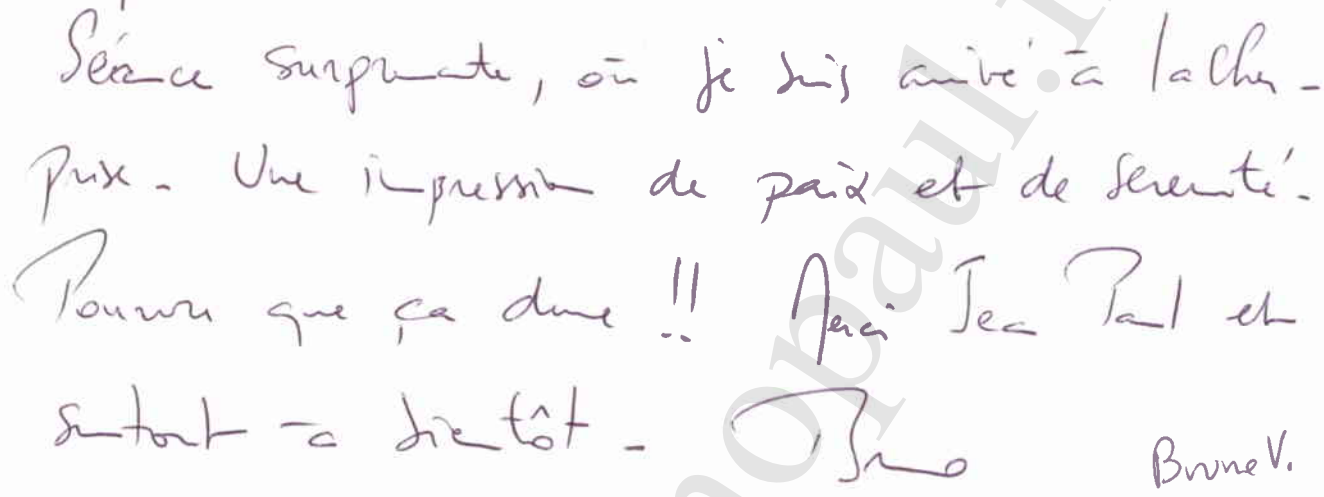 Séance surprenante, où je suis arrivé à lacher-
prise. Une impression de paix et de sérénité.
Pourvu que ça dure !! Merci Jean Paul et
surtout à bientôt.
Bruno
Brune V.